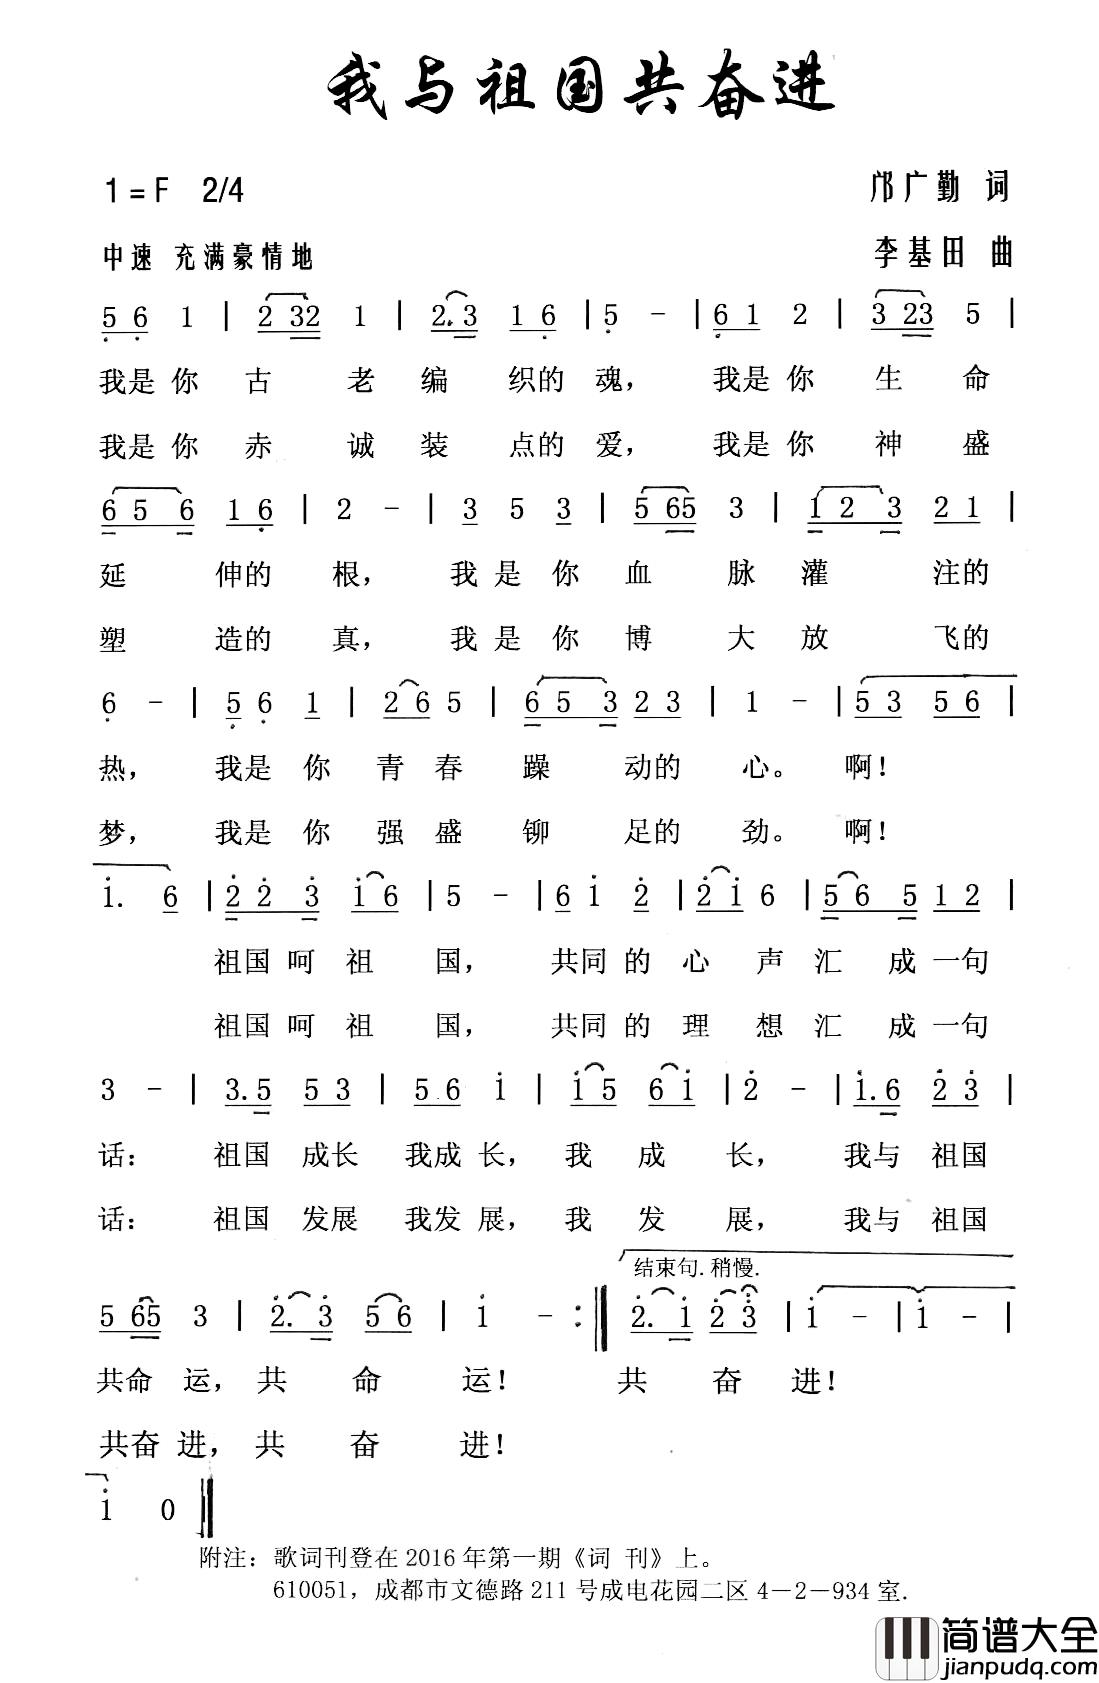 我与祖国共奋进
1=F 2/4
邝广勤 词
中速 充满豪情地
李基田 曲
5 6 1 | 2 32 1 | 2. 3 1 6 | 5 - | 6 1 2 | 3 23 5 |
我是 你 古 老 编 织的 魂, 我是 你 生 命
我是 你 赤 诚 装 点的 爱, 我是 你 神 盛
6 5 6 1 6 | 2 - | 3 5 3 | 5 65 3 | 1 2 3 2 1 |
延 伸的 根, 我 是 你 血 脉 灌 注的
塑 造的 真, 我 是 你 博 大 放 飞的
6 - | 5 6 1 | 2 6 5 | 6 5 3 2 3 | 1 - | 5 3 5 6 |
热, 我是 你 青 春 躁 动的 心。 啊!
梦, 我是 你 强 盛 铆 足的 劲。 啊!
1. 6 | 2 2 3 1 6 | 5 - | 6 1 2 | 2 1 6 | 5 6 5 1 2 |
祖国 呵 祖 国, 共同 的 心 声 汇 成 一句
祖国 呵 祖 国, 共同 的 理 想 汇 成 一句
3 - | 3. 5 5 3 | 5 6 1 | 1 5 6 1 | 2 - | 1. 6 2 3 |
话: 祖国 成长 我成 长, 我 成 长, 我与 祖国
话: 祖国 发展 我发 展, 我 发 展, 我与 祖国
结束句.稍慢.
5 65 3 | 2. 3 5 6 | 1 - :‖ 2. 1 2 3 | 1 - | 1 - |
共命 运, 共 命 运! 共 奋 进!
共奋 进, 共 奋 进!
1 0 ‖
附注: 歌词刊登在 2016 年第一期《词 刊》上。
610051, 成都市文德路 211 号成电花园二区 4-2-934 室.
简谱大全
jianpudq.com